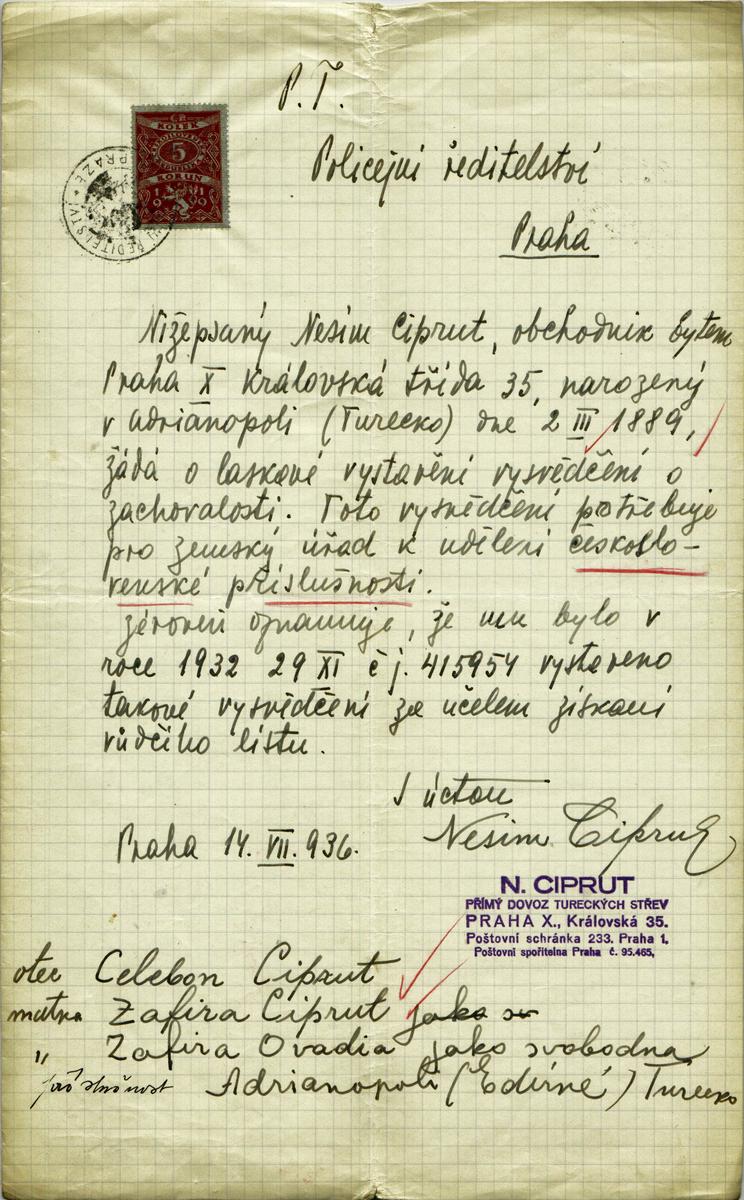 P. T.
KOLEK
5
KORUN
1919
PRAZE
ŘEDITELSTV
Policejní ředitelství
Praha
Nižepsaný Nesim Ciprut, obchodník bytem
Praha X Královská třída 35, narozený
v Adrianopoli (Turecko) dne 2 III 1889,
žádá o laskové vystavění vysvědčení o
zachovalosti. Toto vysvědčení potřebuje
pro zemský úřad k udělení českoslo-
venské příslušnosti.
zéroveň oznamuje, že mu bylo v
roce 1932 29 XI č j. 415954 vystaveno
takové vysvědčení za účelem získaní
vůdčího listu.
S úctou
Praha 14. VII. 936.
Nesim Ciprut
N. CIPRUT
PŘÍMÝ DOVOZ TURECKÝCH STŘEV
PRAHA X., Královská 35.
Poštovní schránka 233. Praha 1.
Poštovní spořitelna Praha č. 95.465,
otec Celebon Ciprut
matka Zafira Ciprut jako sv
„ Zafira Ovadia jako svobodna
příslušnost Adrianopoli (Edirné) Turecko